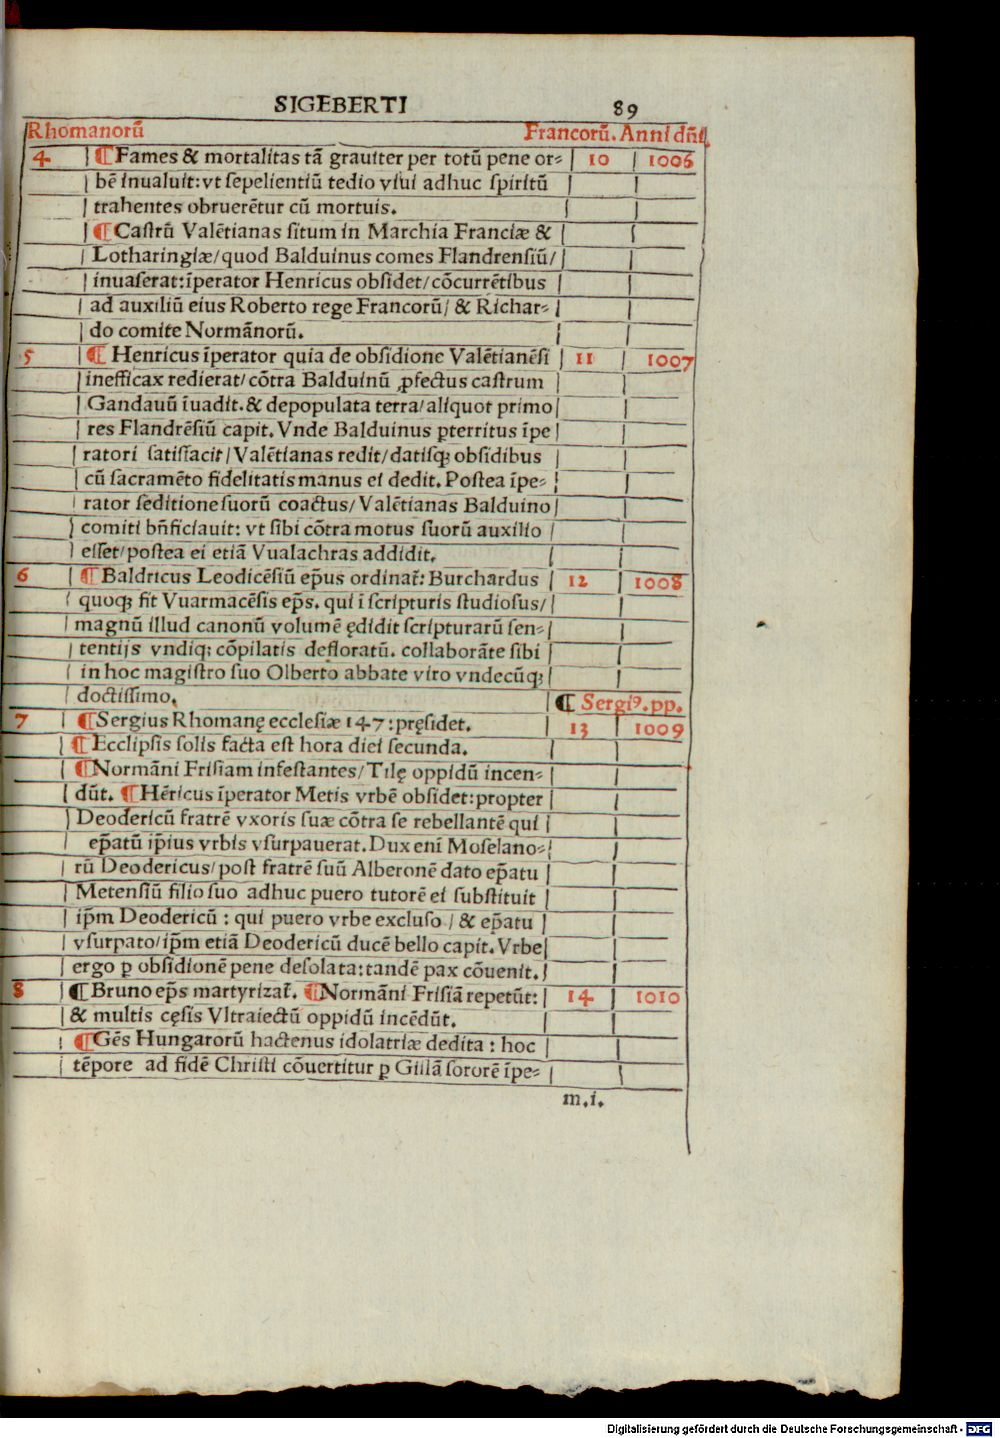 SIGEBERTI 89
Rhomanorũ Francorũ. Anni dñi.
4 ¶Fames & mortalitas tã grauiter per totũ pene or= 10 1006
bẽ inualuit: vt sepelientiũ tedio viui adhuc spiritũ
trahentes obruerẽtur cũ mortuis.
¶Castrũ Valẽtianas situm in Marchia Franciæ &
Lotharingiæ/quod Balduinus comes Flandrensiũ/
inuaserat: ĩperator Henricus obsidet/cõcurrẽtibus
ad auxiliũ eius Roberto rege Francorũ/ & Richar=
do comite Normãnorũ.
5 ¶ Henricus ĩperator quia de obsidione Valẽtianẽsi 11 1007
inefficax redierat/cõtra Balduinũ ꝓfectus castrum
Gandauũ ĩuadit. & depopulata terra/aliquot primo
res Flandrẽsiũ capit. Vnde Balduinus ꝑterritus ĩpe
ratori satisfacit/Valẽtianas redit/datisqꝫ obsidibus
cũ sacramẽto fidelitatis manus ei dedit. Postea ĩpe=
rator seditione suorũ coactus/Valẽtianas Balduino
comiti bñficiauit: vt sibi cõtra motus suorũ auxilio
esset/postea ei etiã Vualachras addidit.
6 ¶Baldricus Leodicẽsiũ ep̃us ordinať: Burchardus 12 1008
quoqꝫ fit Vuarmacẽsis ep̃s. qui ĩ scripturis studiosus/
magnũ illud canonũ volumẽ ędidit scripturarũ sen=
tentijs vndiqꝫ cõpilatis defloratũ. collaborãte sibi
in hoc magistro suo Olberto abbate viro vndecũqꝫ
doctissimo. ¶ Sergiꝰ. pp.
7 ¶Sergius Rhomanę ecclesiæ 147: pręsidet. 13 1009
¶Ecclipsis solis facta est hora diei secunda.
¶Normãni Frisiam infestantes/Tilę oppidũ incen=
dũt. ¶Hẽricus ĩperator Metis vrbẽ obsidet: propter
Deodericũ fratrẽ vxoris suæ cõtra se rebellantẽ qui
ep̃atũ ip̃ius vrbis vsurpauerat. Dux eni Moselano=
rũ Deodericus/post fratrẽ suũ Alberonẽ dato ep̃atu
Metensiũ filio suo adhuc puero tutorẽ ei substituit
ip̃m Deodericũ : qui puero vrbe excluso / & ep̃atu
vsurpato/ip̃m etiã Deodericũ ducẽ bello capit. Vrbe
ergo ꝑ obsidionẽ pene desolata: tandẽ pax cõuenit.
8 ¶Bruno ep̃s martyrizať. ¶Normãni Frisiã repetũt: 14 1010
& multis cęsis Vltraiectũ oppidũ incẽdũt.
¶Gẽs Hungarorũ hactenus idolatriæ dedita : hoc
tẽpore ad fidẽ Christi cõuertitur ꝑ Gillã sororẽ ĩpe=
m.i.
Digitalisierung gefördert durch die Deutsche Forschungsgemeinschaft - DFG